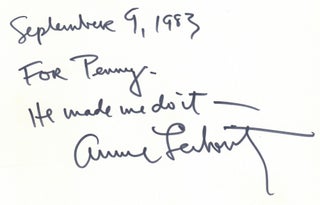 September 9, 1983
FOR Penny-
He made me do it —
Annie Leibovitz